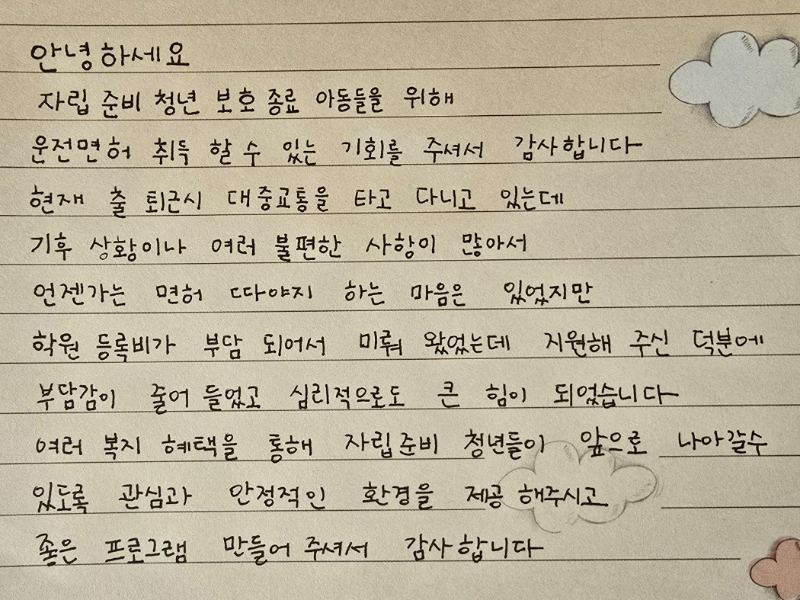 안녕하세요
자립 준비 청년 보호 종료 아동들을 위해
운전면허 취득 할 수 있는 기회를 주셔서 감사합니다
현재 출 퇴근시 대중교통을 타고 다니고 있는데
기후 상황이나 여러 불편한 사항이 많아서
언젠가는 면허 따야지 하는 마음은 있었지만
학원 등록비가 부담 되어서 미뤄 왔었는데 지원해 주신 덕분에
부담감이 줄어 들었고 심리적으로도 큰 힘이 되었습니다
여러 복지 혜택을 통해 자립준비 청년들이 앞으로 나아갈수
있도록 관심과 안정적인 환경을 제공 해주시고
좋은 프로그램 만들어 주셔서 감사합니다